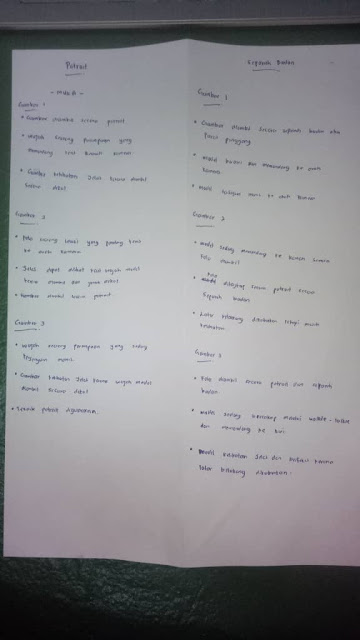 Potrait
- muka -
Gambar 1
• Gambar diambil secara potrait
• Wajah seorang perempuan yang
memandang arah kamera
• Gambar kelihatan jelas kerana diambil
secara dekat
Gambar 2
• Foto seorang lelaki yang
ke arah kamera
• Jelas dapat dilihat wajah model
kerana diambil dari jarak dekat
• Gambar diambil secara potrait
Gambar 3
• Wajah seorang perempuan yang sedang
manis
• Gambar kelihatan jelas kerana wajah model
diambil secara dekat
• Teknik potrait digunakan
Separuh Badan
Gambar 1
• Gambar diambil secara separuh badan atas
paras pinggang
• Model berdiri dan memandang ke arah
kamera
• Model
Gambar 2
• Model sedang memandang ke bawah
foto diambil
• Foto ditangkap secara potrait
separuh badan
• Latar belakang dikaburkan
kelihatan
Gambar 3
• Foto diambil secara potrait dan separuh
badan
• Model sedang bercakap melalui walkie-talkie
dan memandang ke kiri
• Model kelihatan jelas dan kerana
latar belakang dikaburkan.